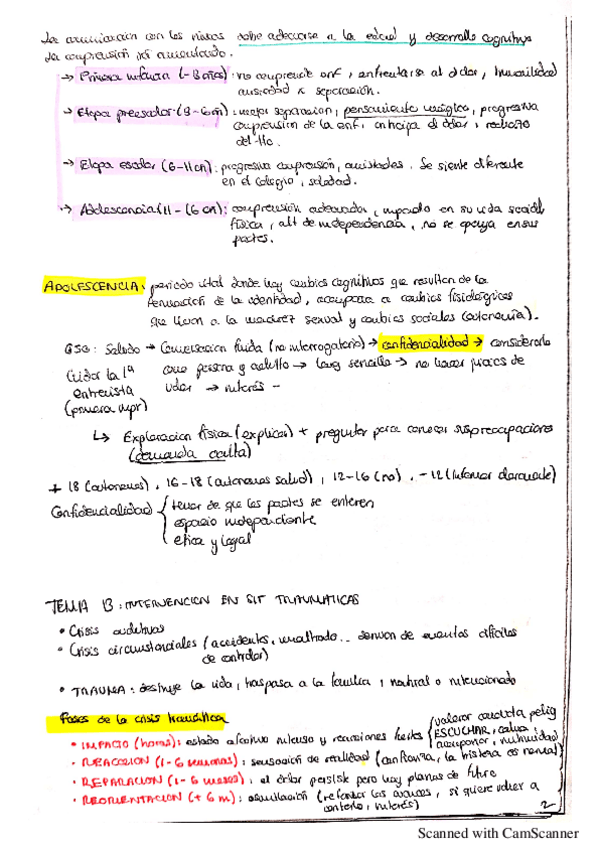 La comunicación con los niños debe adecuarse a la edad y desarrollo cognitivo
La comprensión irá aumentando.
→ Primera infancia (-3 años): no comprende enf, enfrentarse al dolor,
ansiedad x separación.
→ Etapa preescolar (3-6m): mejor separación, pensamiento mágico, progresiva
comprensión de la enf, anticipa el dolor, rechazo
del tto.
→ Etapa escolar (6-11 años): progresiva comprensión, amistades. Se siente diferente
en el colegio, soledad.
→ Adolescencia (11-16 añ): comprensión adecuada, impacto en su vida social
física, alt de independencia, no se apoya en sus
padres.
ADOLESCENCIA: periodo vital donde hay cambios cognitivos que resultan de la
formación de la identidad, acompaña a cambios fisiológicos
que llevan a la madurez sexual y cambios sociales (autonomía).
Saludo → Conversación fluida (no interrogatorio) → confidencialidad → considerarla
Cuidar la 1ª
como persona y adulto → leng sencillo → no hacer juicios de
entrevista
valor → interés -
(primera impr)
↳ Exploración física (explicar) + preguntar para conocer sus preocupaciones
(demanda oculta)
+ 18 (autónomos), 16-18 (autónomos salud), 12-16 (no), -12 (informar)
Confidencialidad { temor de que los padres se enteren
espacio independiente
ética y legal
TEMA 13: INTERVENCION EN SIT TRAUMATICAS
• Crisis evolutivas
• Crisis circunstanciales (accidentes, maltrado... derivan de eventos difíciles
de controlar)
• TRAUMA: destruye la vida, traspasa a la familia, natural o intencionado
Fases de la crisis traumática
• IMPACTO (horas): estado afectivo intenso y reacciones fuertes { valorar conducta pelig
ESCUCHAR, calma,
acompañar,
• REACCION (1-6 semanas): sensación de realidad (confianza, la histeria es normal)
• REPARACION (1-6 meses): el dolor persiste pero hay planes de futuro
• REORIENTACION (+ 6 m): asimilación (reforzar los avances, si quiere volver a
contarlo, interés)
2
Scanned with CamScanner